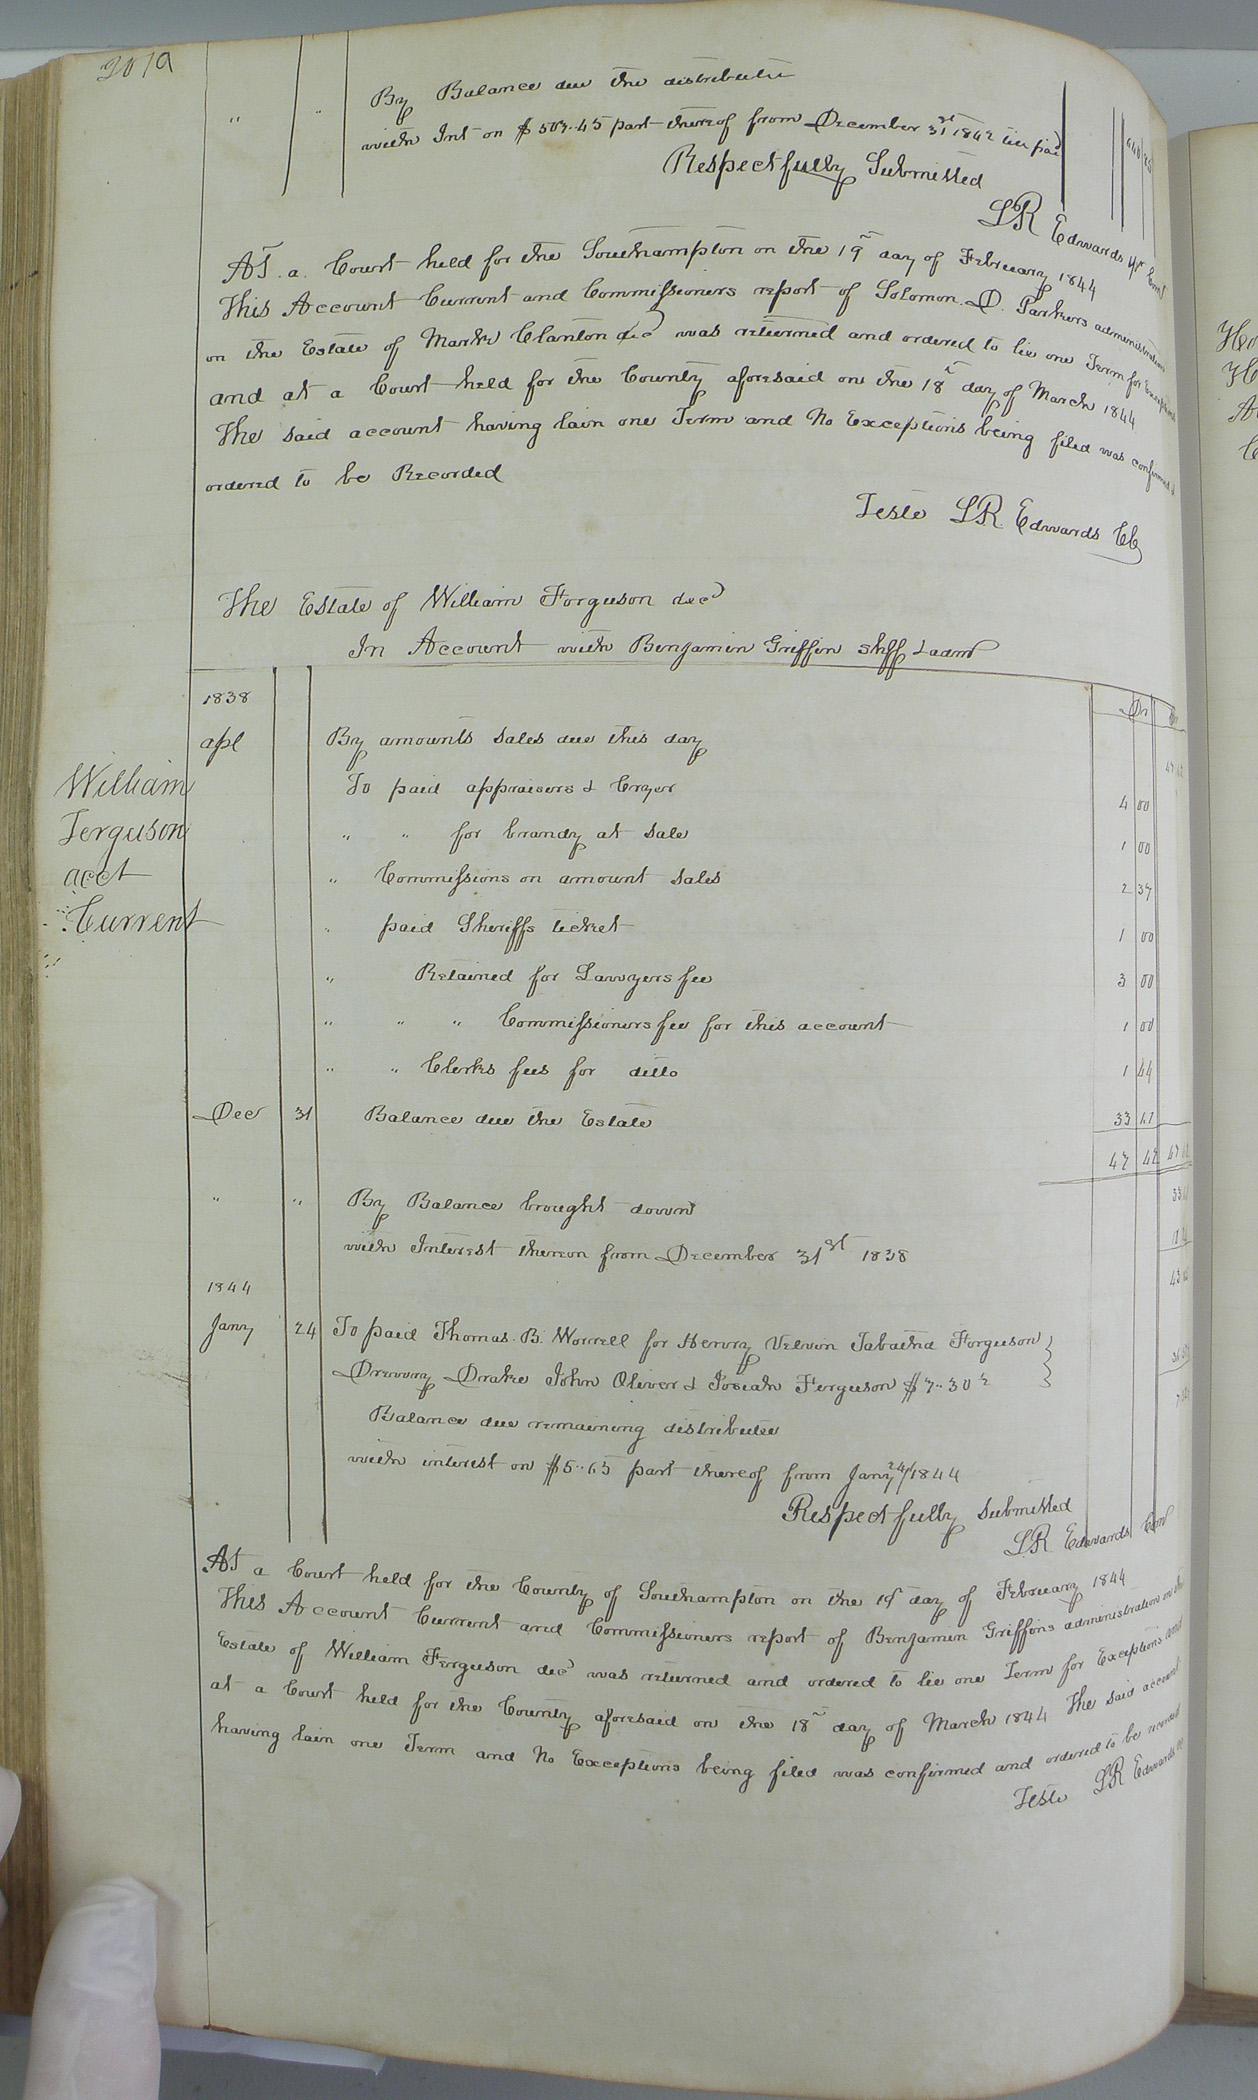 201a
" " By Balance due the distributee
with Int on $503..45 part thereof from December 31st 1842 till paid
Respectfully Submitted
LR Edwards
At a Court held for the Southampton on the 19th day of February 1844
This Account Current and Commissioners report of Solomon D. Parkers administration
on the Estate of Marke Clanton decd was returned and ordered to lie one Term for Exceptions
and at a Court held for the County aforesaid on the 18th day of March 1844
The said account having lain one Term and No Exceptions being filed was confirmed &
ordered to be Recorded
Teste LR. Edwards CC
The Estate of William Forguson decd
In Account with Benjamin Griffin Shff & admr
1838 Dr Cr
apl By amounts sales due this day
To paid appraisers & Cryer 4 00
" " for brandy at sale 1 00
" Commissions on amount sales 2 37
" paid Sheriffs ticket 1 00
" Retained for Lawyers fee 3 00
" " " Commissioners fee for this account 1 00
" " Clerks fees for ditto 1 44
Dec 31 Balance due the Estate 33 61
47 42
" " By Balance brought down
with Interest thereon from December 31st 1838
1844
Jany 24 To paid Thomas. B. Worrell for Henry Velvin Tabatha Forguson
Drewry Drake John Oliver & Josiah Ferguson $7..30½
Balance due remaining distributee
with interest on $5..65 part thereof from Jany 24/1844
Respectfully submitted
LR Edwards Com
William
Ferguson
acct
Current
At a Court held for the County of Southampton on the 19 day of February 1844
This Account Current and Commissioners report of Benjamin Griffins administration on the
Estate of William Ferguson decd was returned and ordered to lie one Term for Exceptions and
at a Court held for the County aforesaid on the 18th day of March 1844 The said account
having lain one Term and No Exceptions being filed was confirmed and ordered to be recorded
Teste LR Edwards